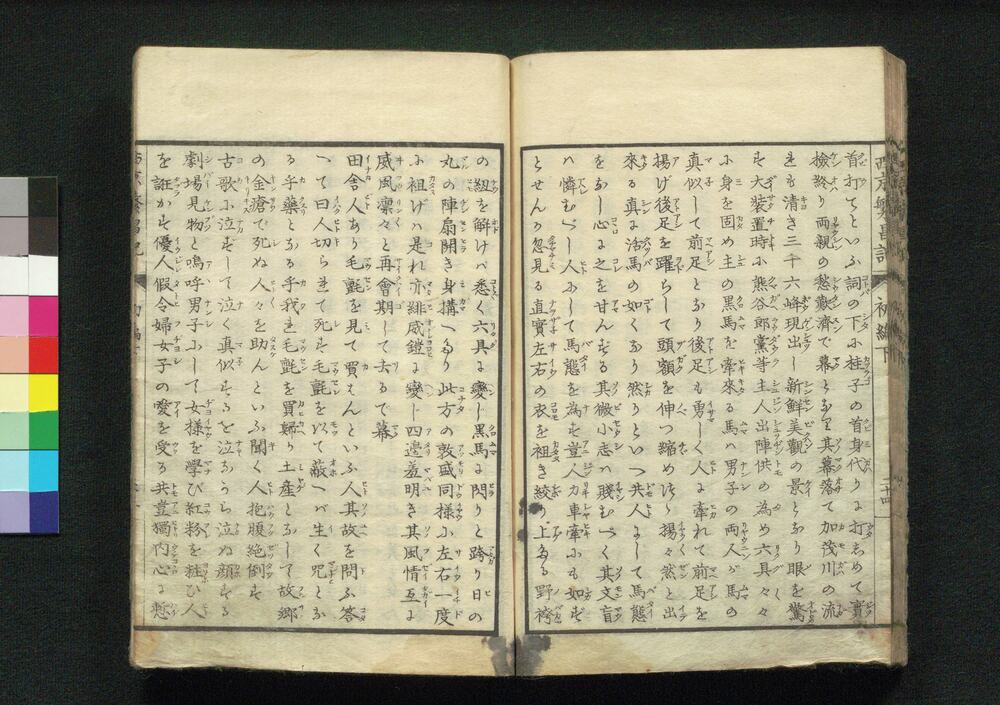 西京繁昌記 初編下
首打てといふ詞の下に桂子の首身代りに打ちめて實
檢終り両親の愁歎濟で幕となり其幕落て加茂川の流
れも清き三千六峰現出し新鮮美觀の景となり眼を驚
す大装置時に熊谷郎黨等主人出陣供の為め六具々々
に身を固め主の黒馬を牽來る馬ハ男子の両人が馬の
真似して前足となり後足も勇しく人に牽れて前足を
揚げ後足を躍らして頭額を伸つ縮めつ揚々然と出
來る真に活馬の如くなり然りといへ共人にして馬態
をなし心に之を甘んずる其微小志ハ賤むべく其文盲
ハ憐むべし人にして馬態を為す豈人力車牽にも如ず
とせんか忽見る直實左右の衣を袒き絞り上たる野袴
の紐を解けバ悉く六具に變し黒馬に閃りと跨り日の
丸の陣扇開き身構へたり此方の敦盛同様に左右一度
に袒けハ是れ亦緋威鎧に變し四邊羞明き其風情互に
威風凛々と再會期して去るで幕
田舎人あり毛氈を見て買はんといふ人其故を問ふ答
へて曰人切られて死も毛氈を以て蔽へバ生く咒とな
る乎藥となる乎我れ毛氈を買歸り土産となして故郷
の金瘡で死ぬ人々を助んといふ聞く人抱腹絶倒す
古歌に泣ずして泣く真似するを泣ながら泣ぬ顔する
劇場見物と嗚呼男子にして女様を學び紅粉を粧ひ人
を誑かす優人假令婦女子の愛を受る共豈獨内心に慙